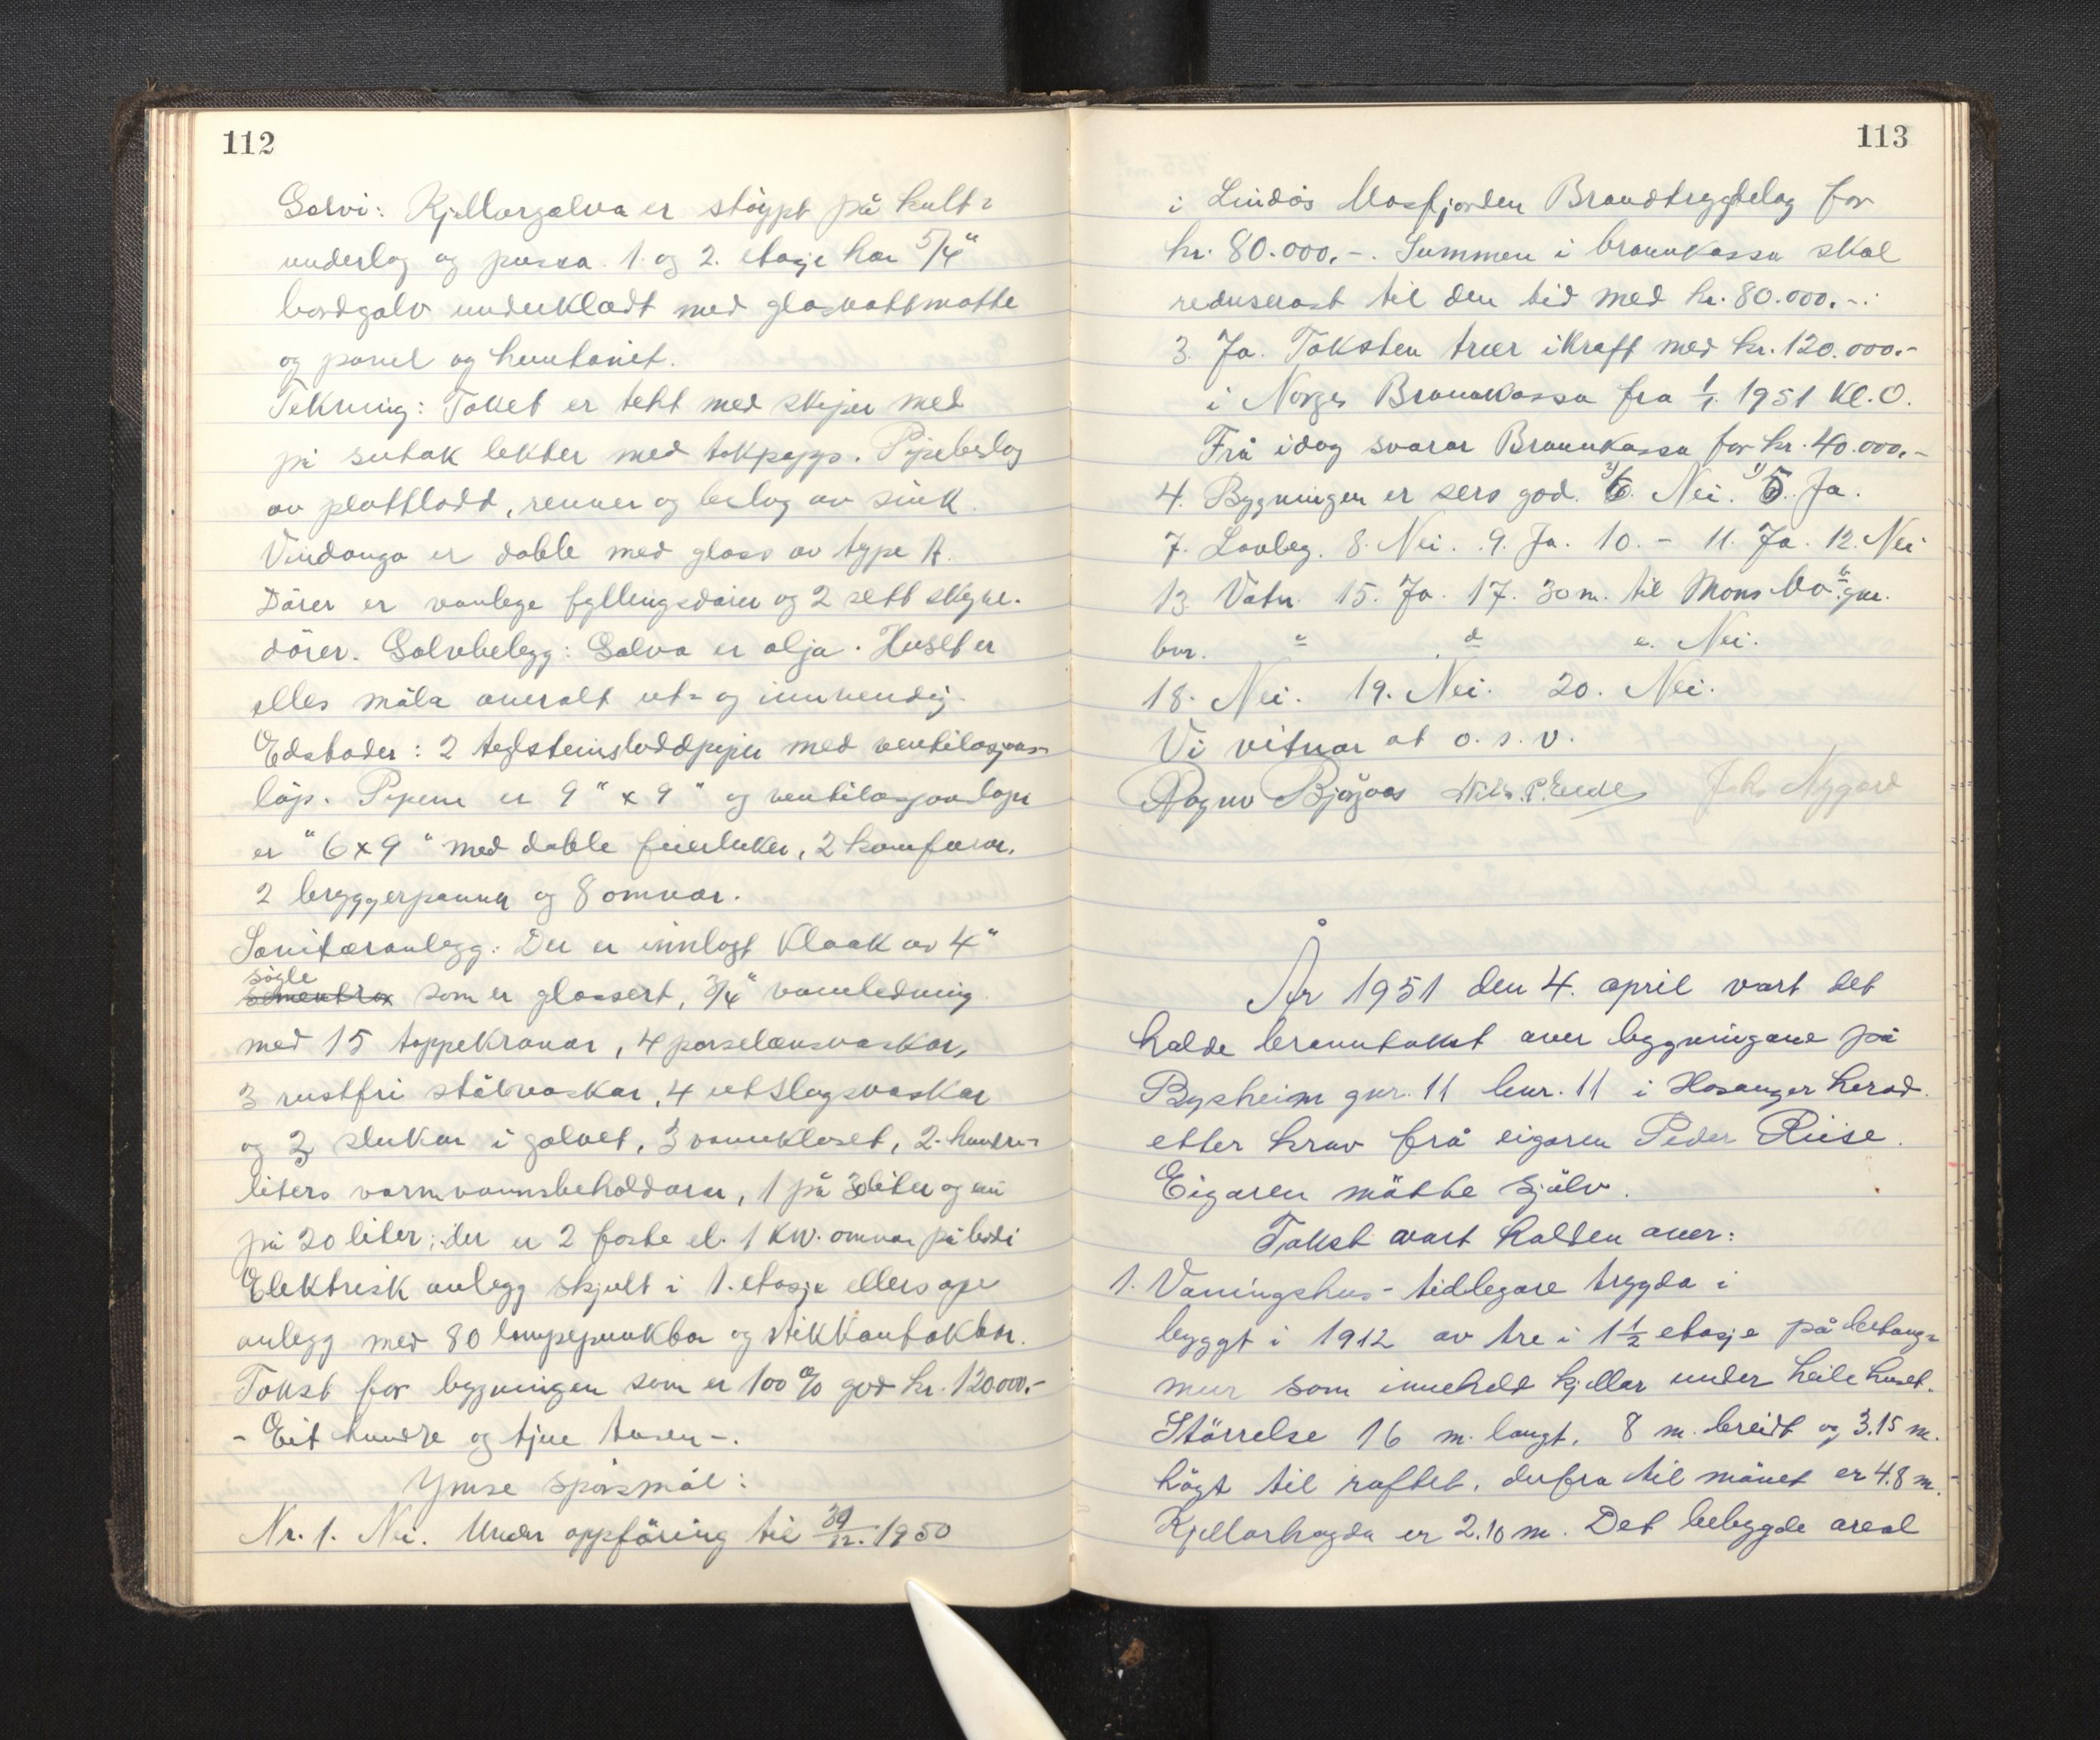 112
Golvi: Kjellargolva er stöypt på kult=
underlag og pussa. 1. og 2. etasje har 5/4"
bordgolv underklædt med glasvattmatte
og panel og huntonit.
Tekning: Taket er tekt med skifer med
på sutak lekter med takpapp. Pipebeslag
av plattlodd, renner og beslag av sink.
Vindauga er doble med glass av type A.
Dörer er vanlege fyllingsdörer og 2 sett skyve-
dörer. Golvbelegg: Golva er olja. Huset er
elles måla overalt ut= og innvendig.
Eldstader: 2 teglsteinsloddpiper med ventilasjons=
löp. Pipene er 9" x 9" og ventilasjonslöpa
er "6x9" med doble feierluker, 2 komfyrar,
2 bryggerpanner og 8 omnar.
Sanitæranlegg: Der er innlagt kloakk av 4"
sögle
sementrör som er glassert, 3/4" vannledning
med 15 tappekranar, 4 porselensvaskar,
3 rustfri stålvaskar, 4 utslagsvaskar
og 3 slukar i golvet, 3 vannkloset, 2. hundre=
liters varmvannsbeholdarar, 1 på 30 liter og ein
på 20 liter; der er 2 faste el. 1 kw. omnar på badi
Elektrisk anlegg skjult i 1. etasje ellers ope
anlegg med 80 lampepunktar og stikkontaktar.
Takst for bygningen som er 100 % god kr. 120000,-
- Eit hundre og tjue tusen -.
Ymse spörsmål:
Nr. 1. Nei. Under oppföring til 30/12. 1950
113
i Lindås Masfjorden Brandtrygdelag for
kr. 80.000,-. Summen i brannkassa skal
reduserast til den tid med kr. 80.000.-.
3. Ja. Taksten treer ikraft med kr. 120.000.-
i Norges Brannkassa fra 1/1. 1951 kl. 0.
Frå idag svarar Brannkassa for kr. 40.000,-
4. Bygningen er sers god. 6. Nei. 5. Ja.
7. Lovleg. 8. Nei. 9. Ja. 10. - 11. Ja. 12. Nei
13. Vatn. 15. Ja. 17. 30 m. til Mons Bö gnr.
bnr. c d e. Nei.
18. Nei. 19. Nei. 20. Nei.
Vi vitnar at o. s. v.
Ragnv Bjørgaas Nils P. Eide Joh. Nygard
År 1951 den 4. april vart det
halde branntakst over bygningane på
Bysheim gnr. 11 bnr. 11 i Hosanger herad.
etter krav frå eigaren Peder Riise.
Eigaren mötte sjölv.
Takst vart halden over:
1. Våningshus - tidlegare trygda i
byggt i 1912 av tre i 1 1/2 etasje på betong=
mur som inneheld kjellar under heile huset.
Störrelse 16 m. langt, 8 m. breidt og 3.15 m.
högt til raftet, derfra til mönet er 4.8 m.
Kjellarhögda er 2.10 m. Det bebygde areal